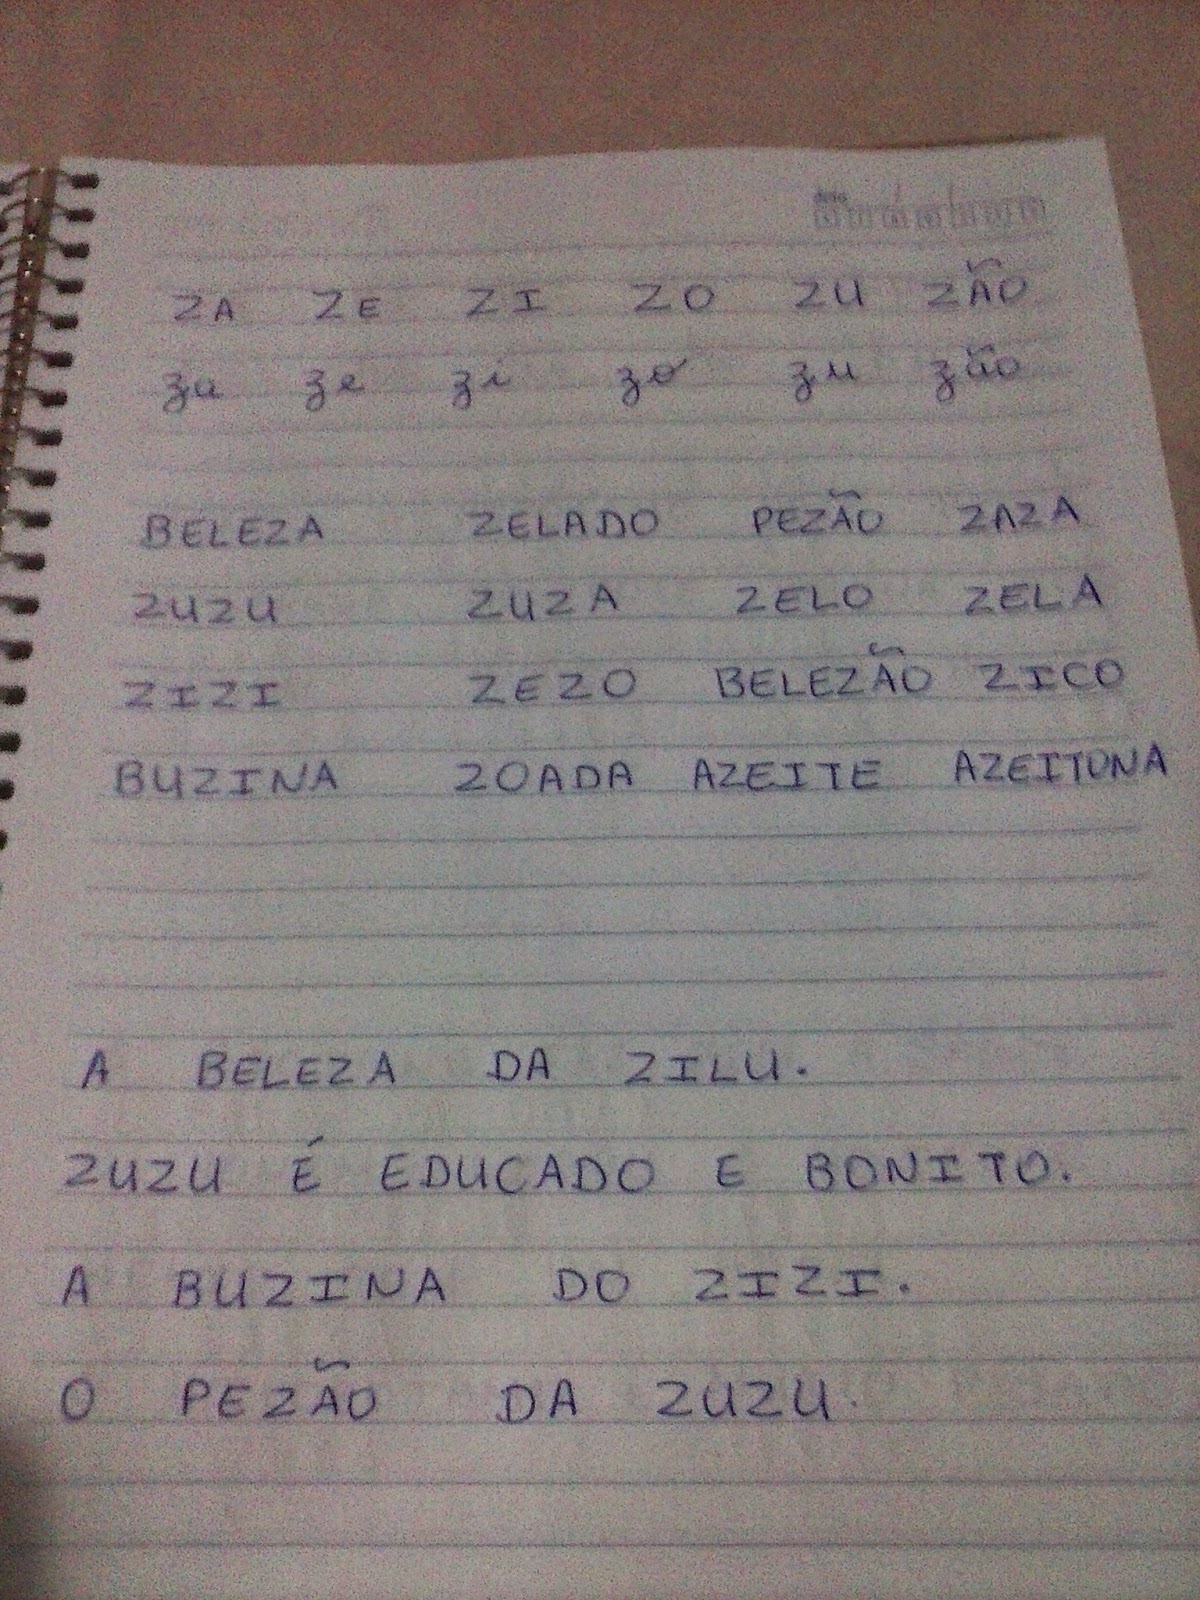 ZA ZE ZI ZO ZU ZÃO
za ze zi zo zu zão
BELEZA ZELADO PEZÃO ZAZA
ZUZU ZUZA ZELO ZELA
ZIZI ZEZO BELEZÃO ZICO
BUZINA ZOADA AZEITE AZEITONA
A BELEZA DA ZILU.
ZUZU É EDUCADO E BONITO.
A BUZINA DO ZIZI.
O PEZÃO DA ZUZU.